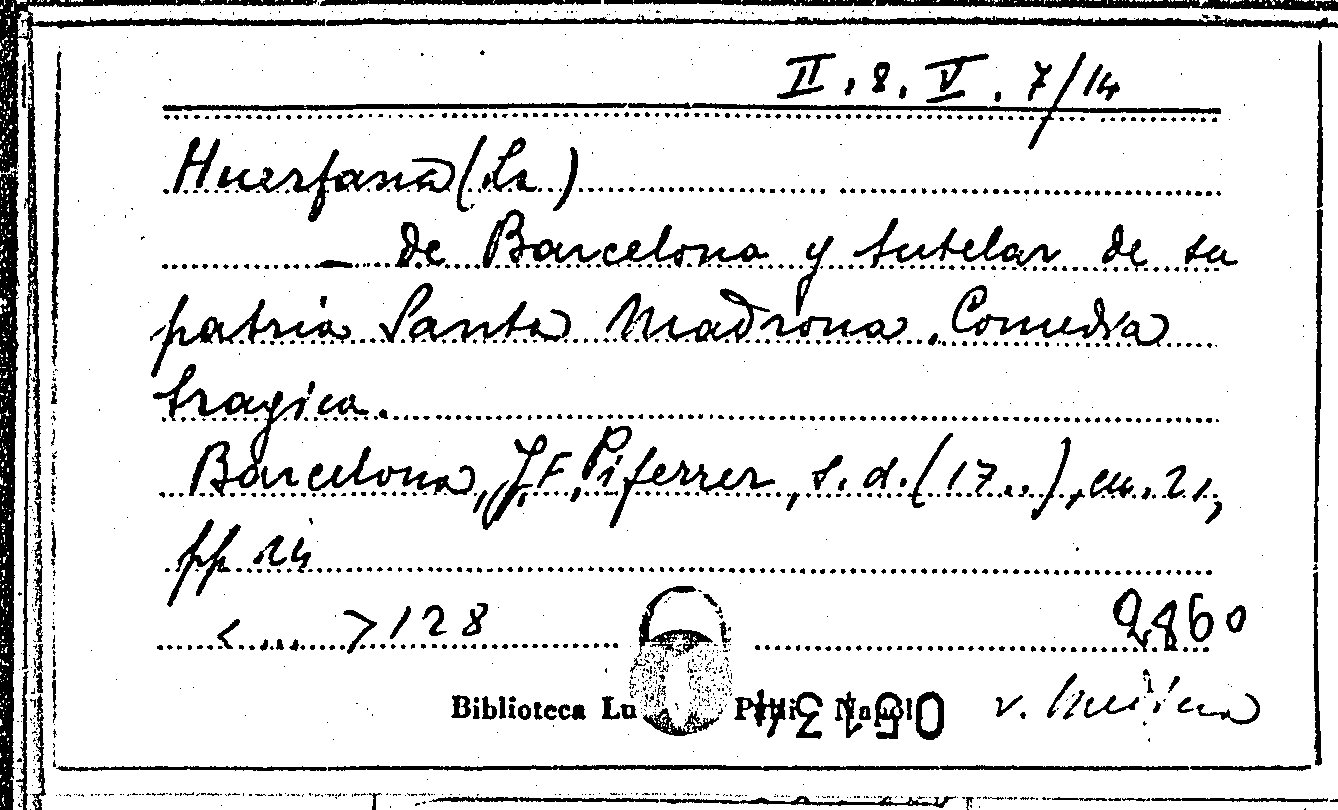 II. 8. V. 7/14
Huerfana (La)
— de Barcelona y tutelar de su
patria Santa Madrona. Comedia
tragica.
Barcelona, J.F. Piferrer, s.d. (17..), cm. 21,
pp 24
<...> 128 2860
Biblioteca Lu
051
v.